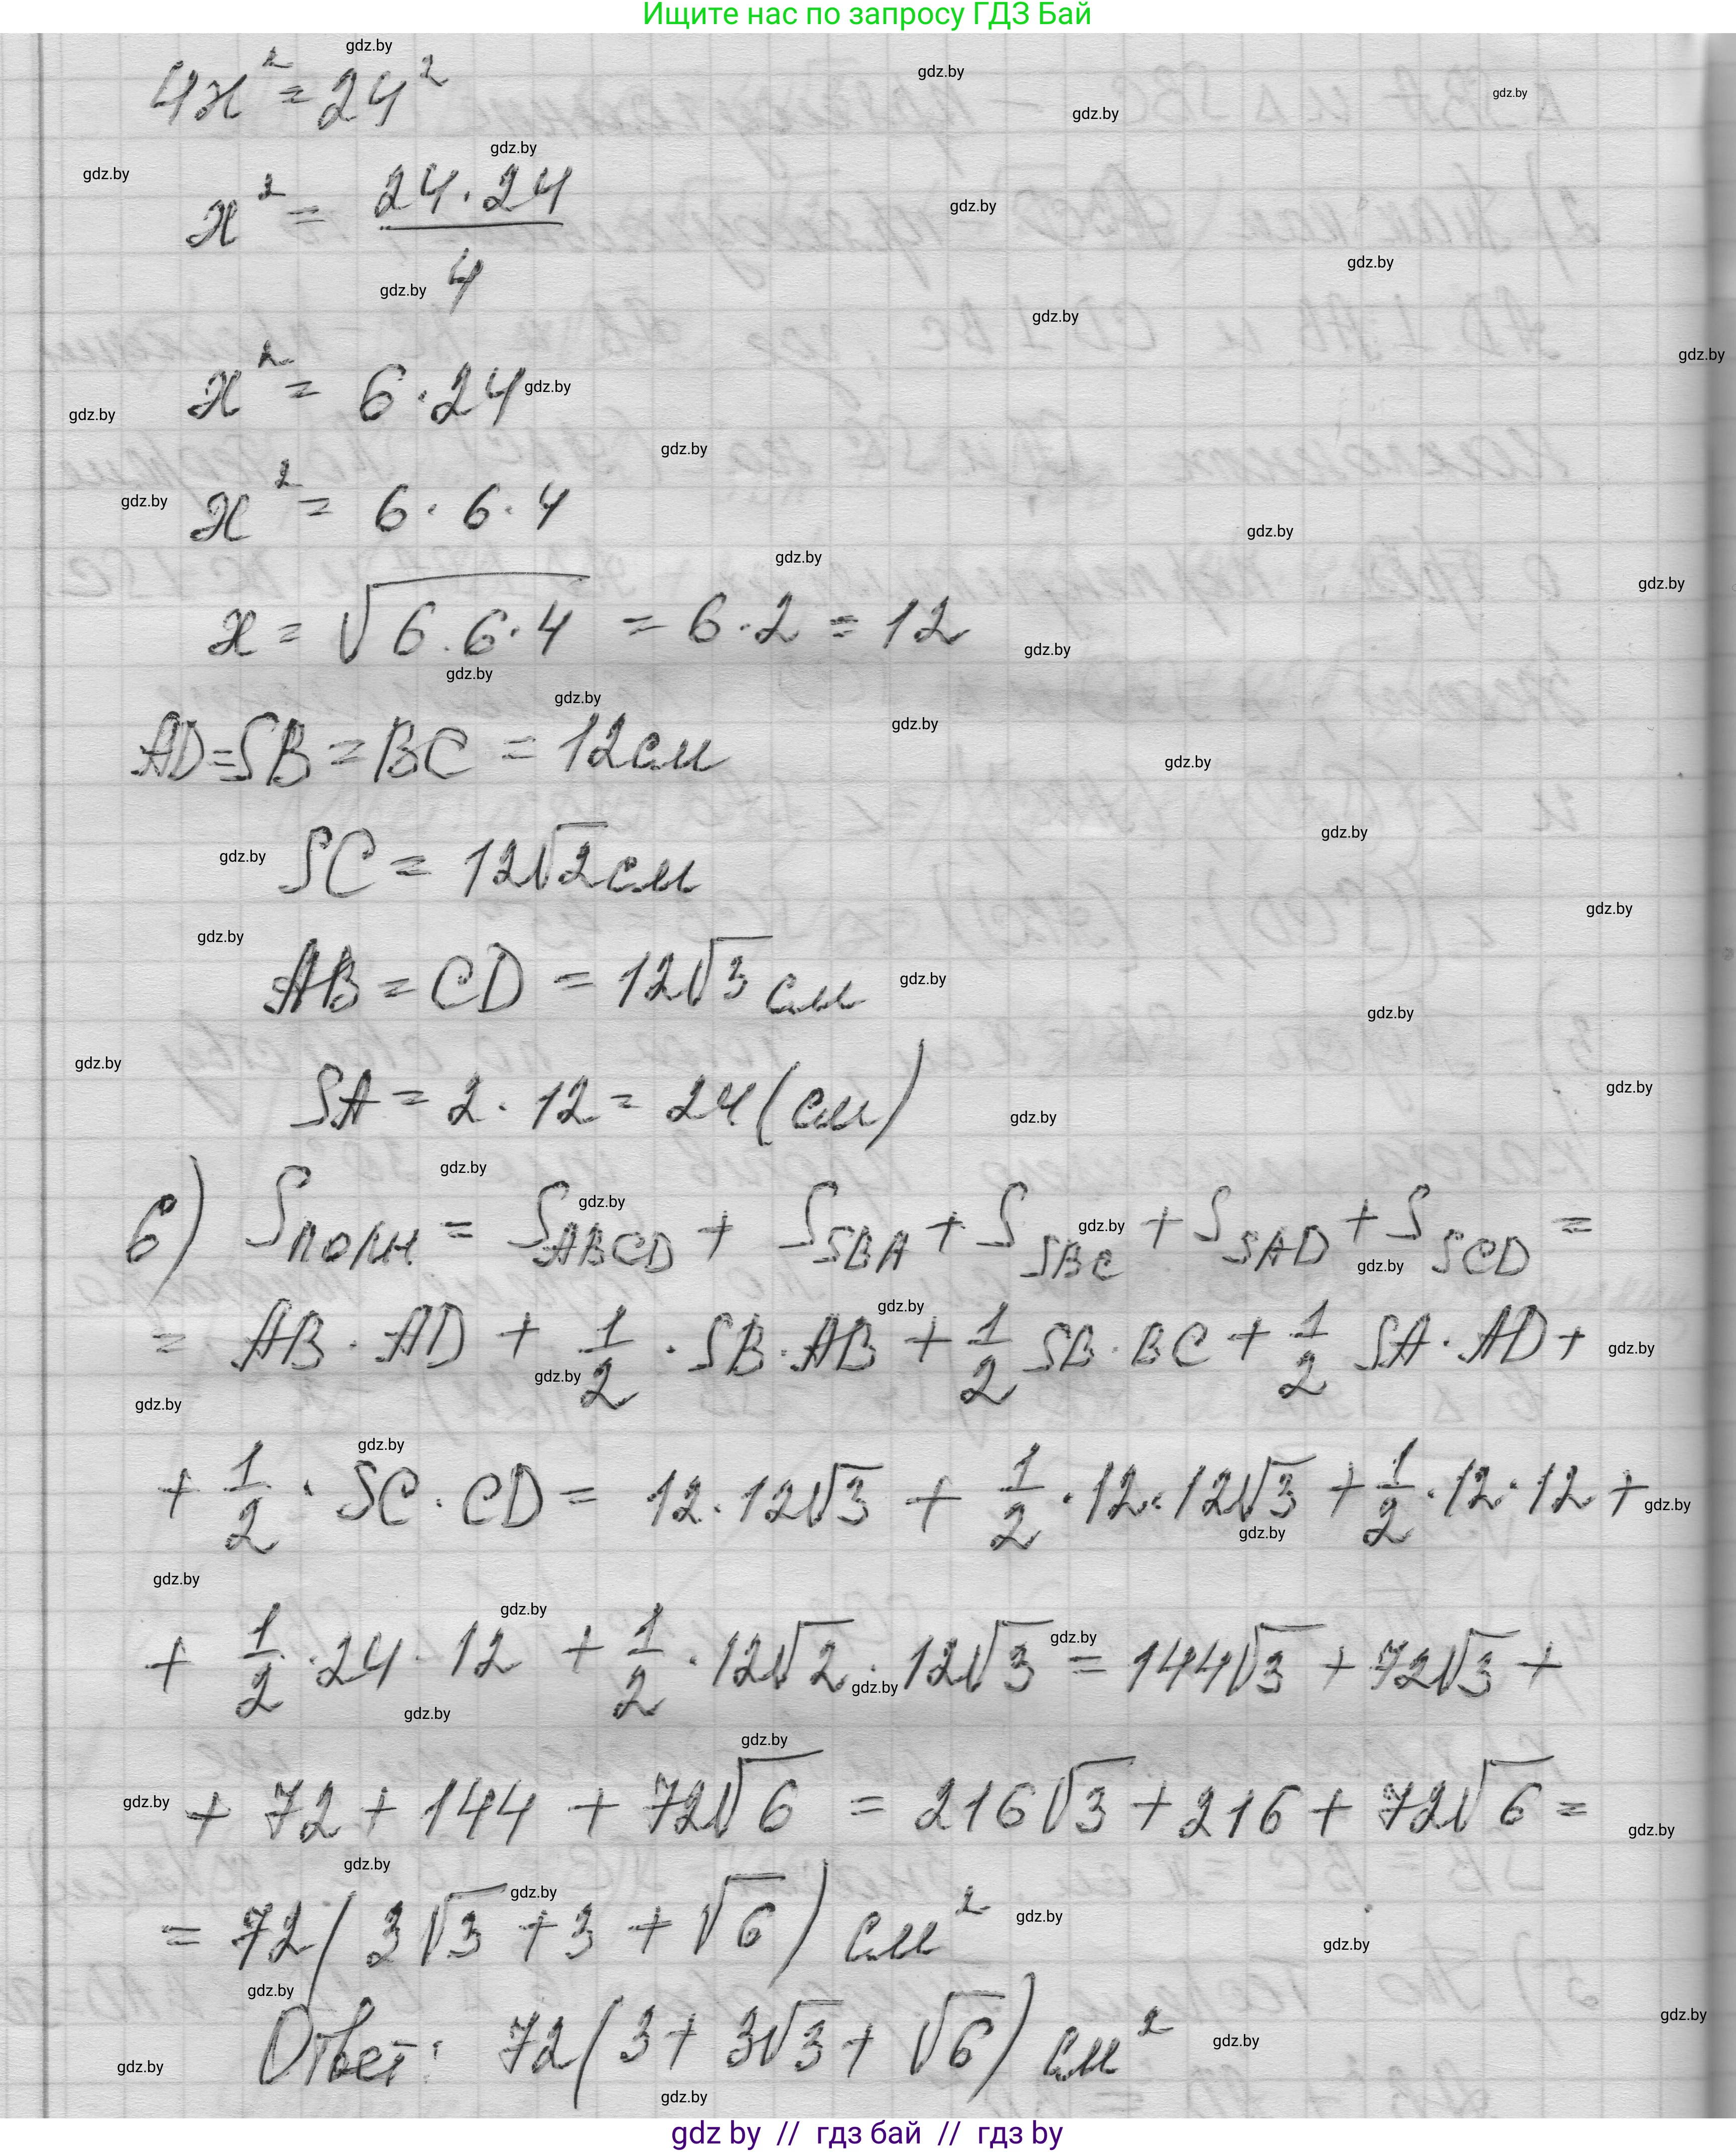 Ищите нас по запросу ГДЗ Бай
4x² = 24²
x² = 24·24 / 4
x² = 6·24
x² = 6·6·4
x = √(6·6·4) = 6·2 = 12
AD = SB = BC = 12 см
SC = 12√2 см
AB = CD = 12√3 см
SA = 2·12 = 24 (см)
6) Sполн = S_ABCD + S_SBA + S_SBC + S_SAD + S_SCD =
= AB·AD + 1/2·SB·AB + 1/2 SB·BC + 1/2 SA·AD +
+ 1/2·SC·CD = 12·12√3 + 1/2·12·12√3 + 1/2·12·12 +
+ 1/2·24·12 + 1/2·12√2·12√3 = 144√3 + 72√3 +
+ 72 + 144 + 72√6 = 216√3 + 216 + 72√6 =
= 72(3√3 + 3 + √6) см²
Ответ: 72(3 + 3√3 + √6) см²
gdz by // гдз бай // гдз by